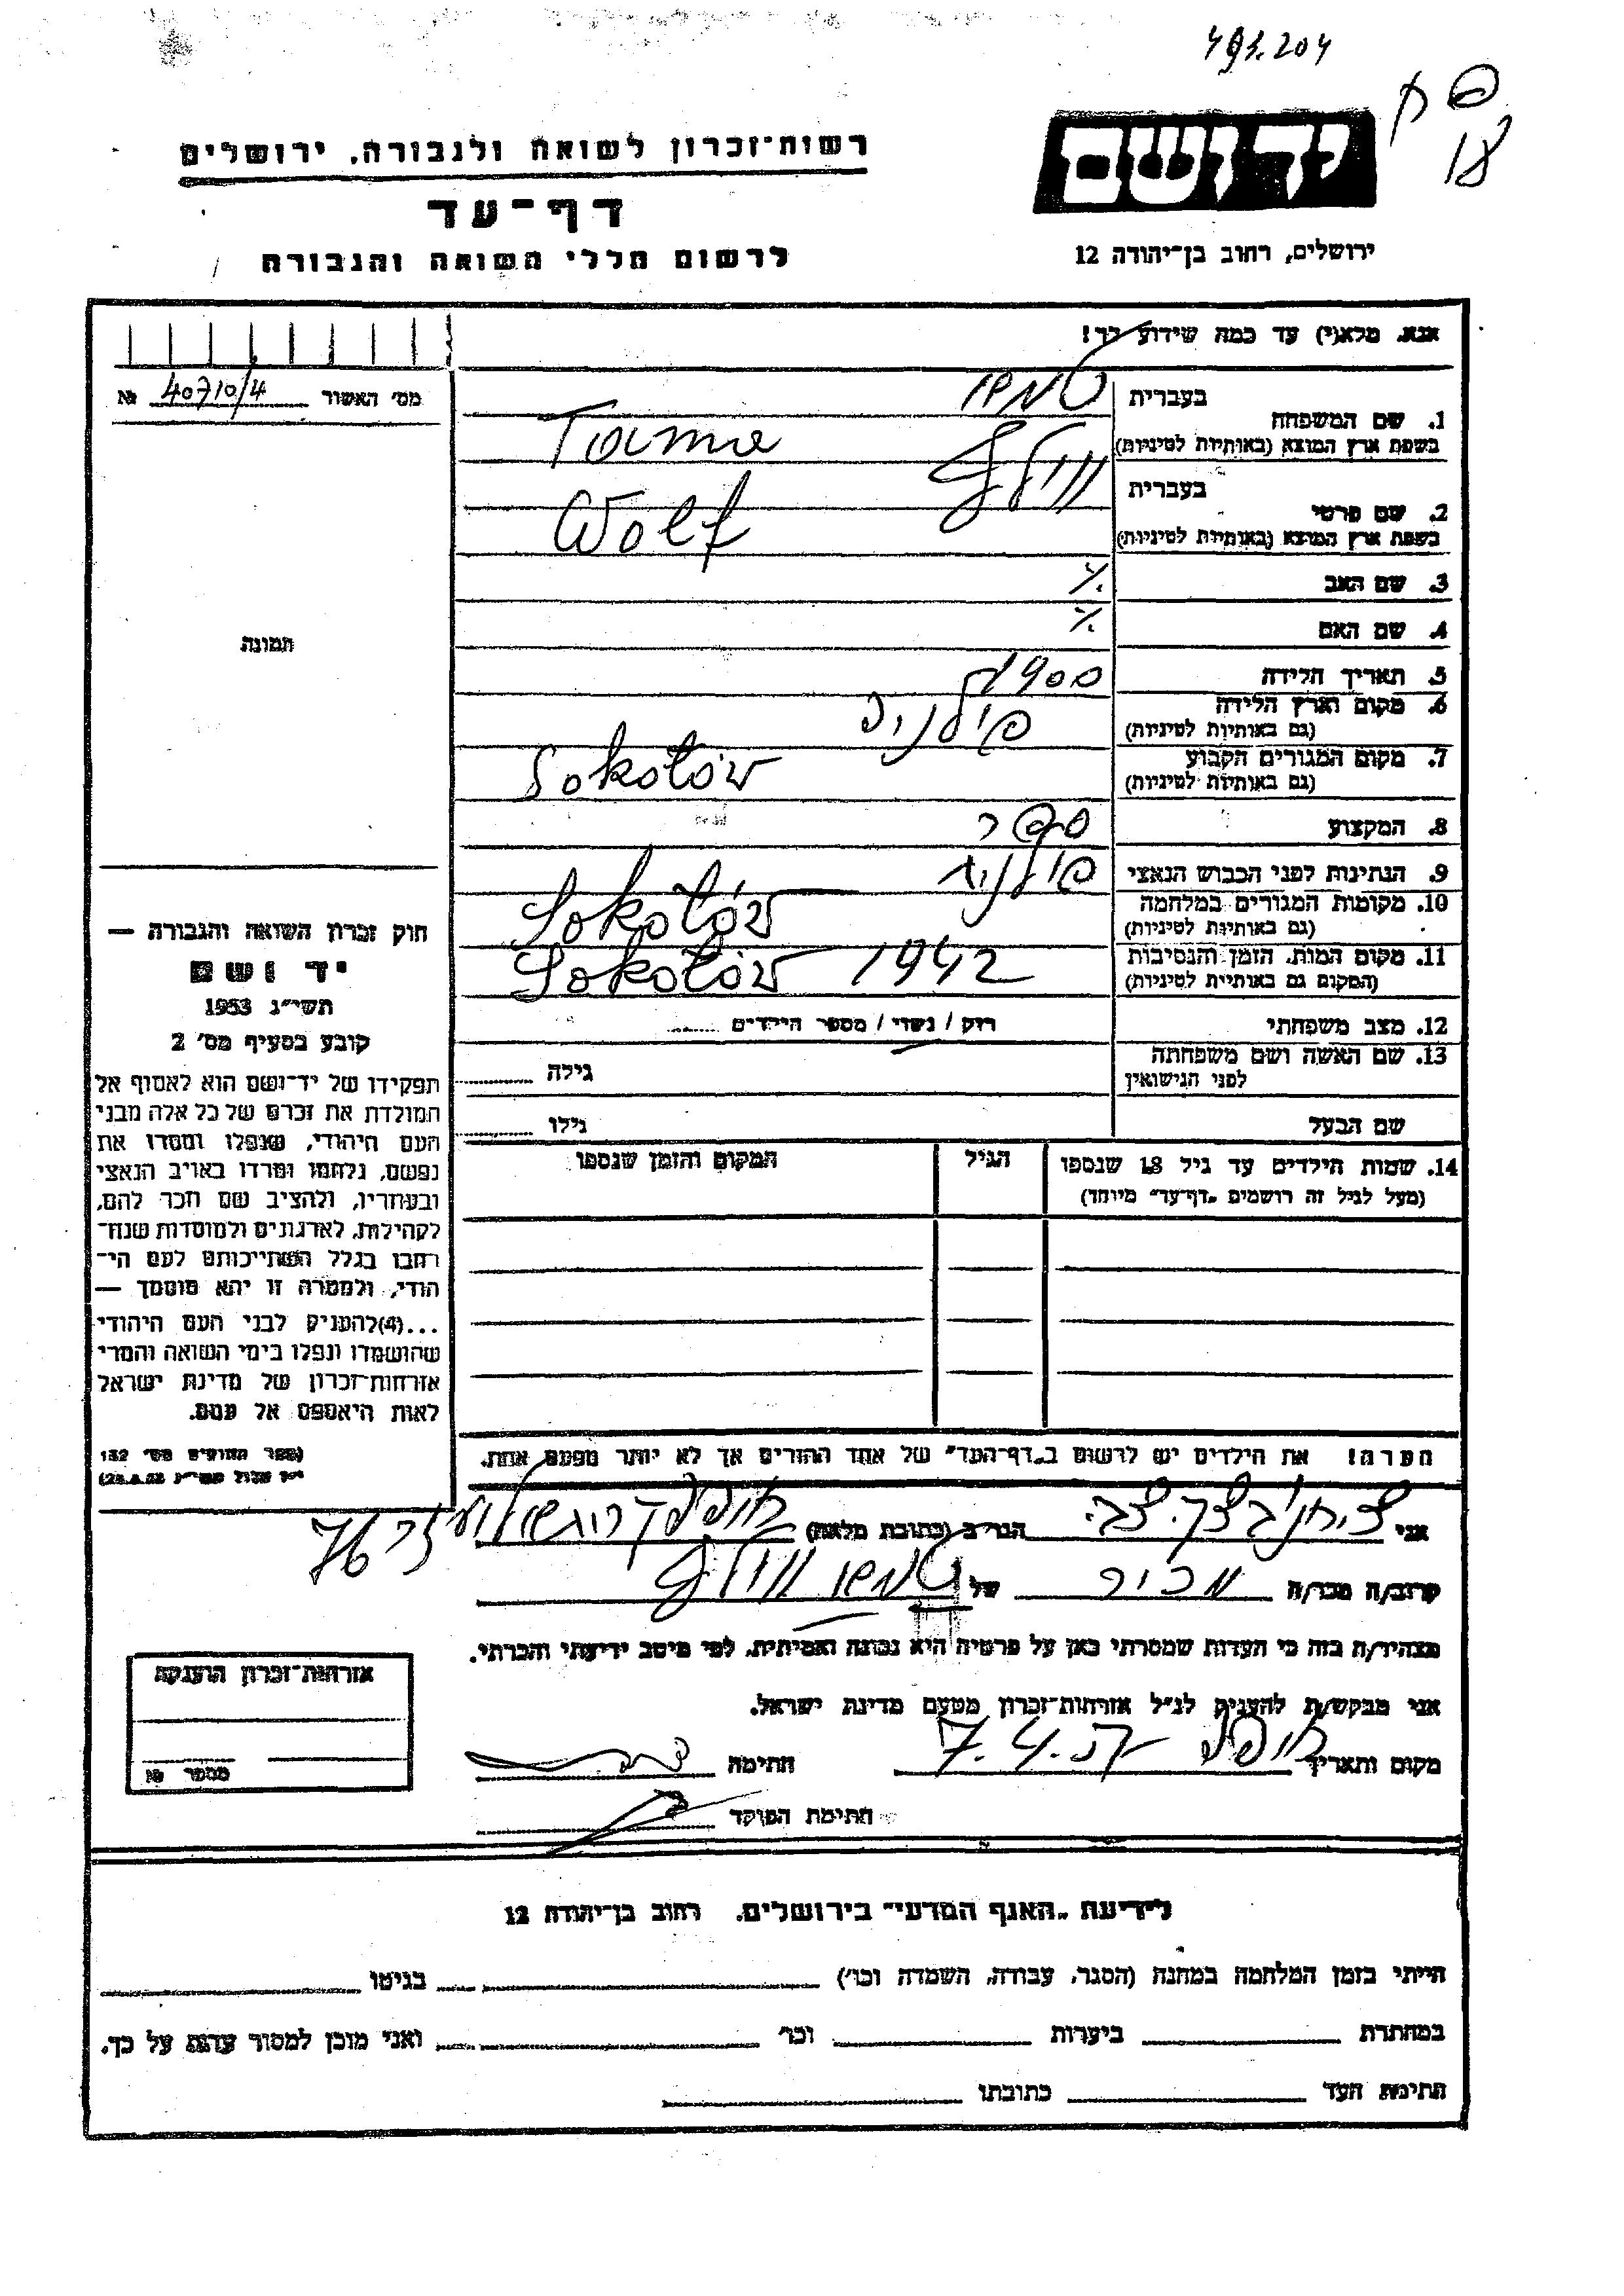 495.204
18
יד ושם
רשות־זכרון לשואה ולגבורה, ירושלים
דף־עד
ירושלים, רחוב בן־יהודה 12
לרשום חללי השואה והגבורה
אנא, מלא(י) עד כמה שידוע לך!
מס׳ האשור 40710/4 №
1. שם המשפחה
בעברית
בשפת ארץ המוצא (באותיות לטיניות)
Tama
2. שם פרטי
בעברית וולף
בשפת ארץ המוצא (באותיות לטיניות)
Wolf
3. שם האב ./.
4. שם האם ./.
תמונה
5. תאריך הלידה 1900
6. מקום וארץ הלידה
(גם באותיות לטיניות)
פולניה
7. מקום המגורים הקבוע
(גם באותיות לטיניות)
Sokołów
8. המקצוע ספר
9. הנתינות לפני הכבוש הנאצי פולנית
10. מקומות המגורים במלחמה
(גם באותיות לטיניות)
Sokołów
11. מקום המות, הזמן והנסיבות
(המקום גם באותיות לטיניות)
Sokołów 1942
12. מצב משפחתי רוק / נשוי / מספר הילדים
13. שם האשה ושם משפחתה
לפני הנישואין
גילה
שם הבעל גילו
14. שמות הילדים עד גיל 18 שנספו
(מעל לגיל זה רושמים „דף־עד" מיוחד)
הגיל
המקום והזמן שנספו
חוק זכרון השואה והגבורה —
יד ושם
תשי״ג 1953
קובע בסעיף מס׳ 2
תפקידו של יד־ושם הוא לאסוף אל
המולדת את זכרם של כל אלה מבני
העם היהודי, שנפלו ומסרו את
נפשם, נלחמו ומרדו באויב הנאצי
ובעוזריו, ולהציב שם וזכר להם,
לקהילות, לארגונים ולמוסדות שנח־
רבו בגלל השתייכותם לעם הי־
הודי, ולמטרה זו יהא מוסמך —
...(4) להעניק לבני העם היהודי
שהושמדו ונפלו בימי השואה והמרי
אזרחות־זכרון של מדינת ישראל
לאות היאספם אל עמם.
(ספר החוקים מס׳ 132
הערה! את הילדים יש לרשום ב„דף־העד" של אחד ההורים אך לא יותר מפעם אחת.
אני
הגר/ב (כתובת מלאה)
קרוב/ה מכר/ה מכיר של וולף
מצהיר/ה בזה כי העדות שמסרתי כאן על פרטיה היא נכונה ואמיתית, לפי מיטב ידיעתי והכרתי.
אני מבקש/ת להעניק לנ״ל אזרחות־זכרון מטעם מדינת ישראל.
מקום ותאריך 7.4. חתימה
חתימת הפוקד
אזרחות־זכרון הוענקה
מספר №
לידיעת „האגף המדעי" בירושלים, רחוב בן־יהודה 12
הייתי בזמן המלחמה במחנה (הסגר, עבודה, השמדה וכו׳) בגיטו
במחתרת ביערות וכו׳ ואני מוכן למסור עדות על כך.
חתימת העד כתובתו